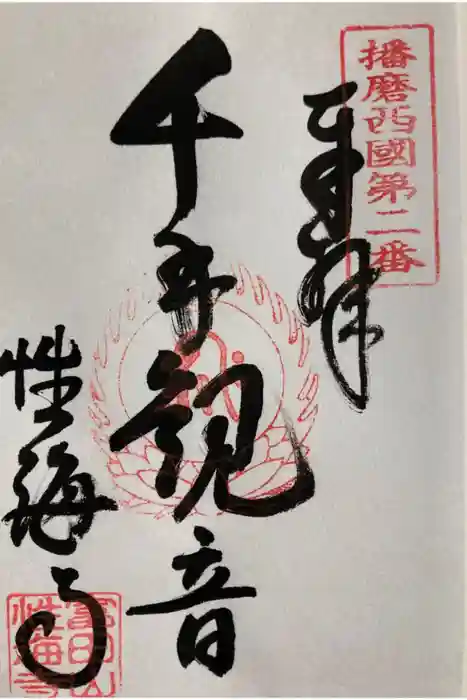 播磨西國第二番
奉拜
千手観音
性海寺
富田山
性海寺